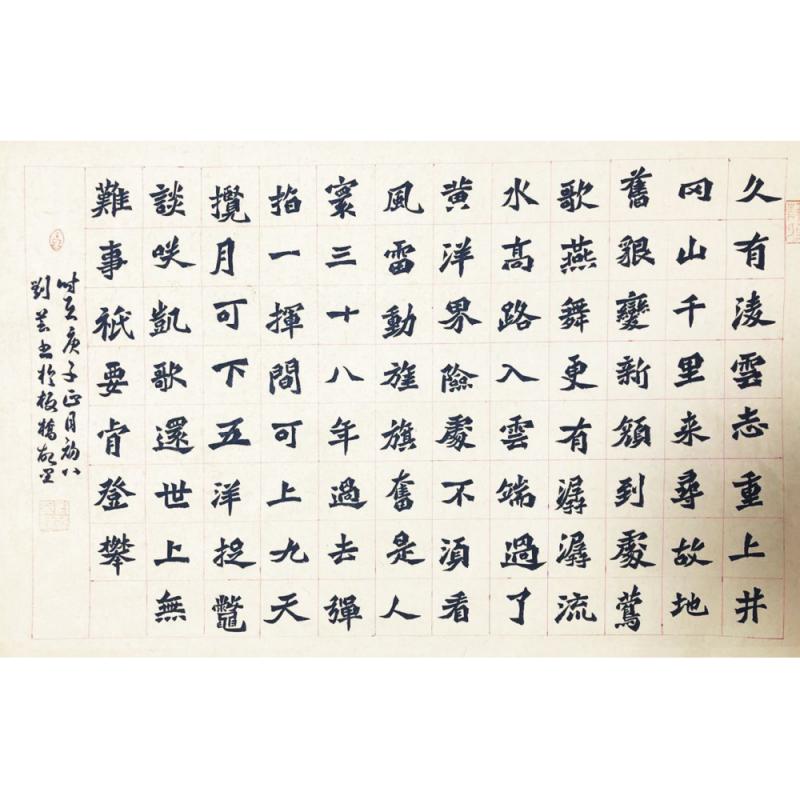 久有淩雲志重上井
冈山千里来尋故地
舊貌變新顔到處鶯
歌燕舞更有潺潺流
水高路入雲端過了
黄洋界險處不須看
風雷動旌旗奮是人
寰三十八年過去彈
指一揮間可上九天
攬月可下五洋捉鼈
談咲凱歌還世上無
難事衹要肯登攀
时在庚子正月初八
劉芸书於板橋故里